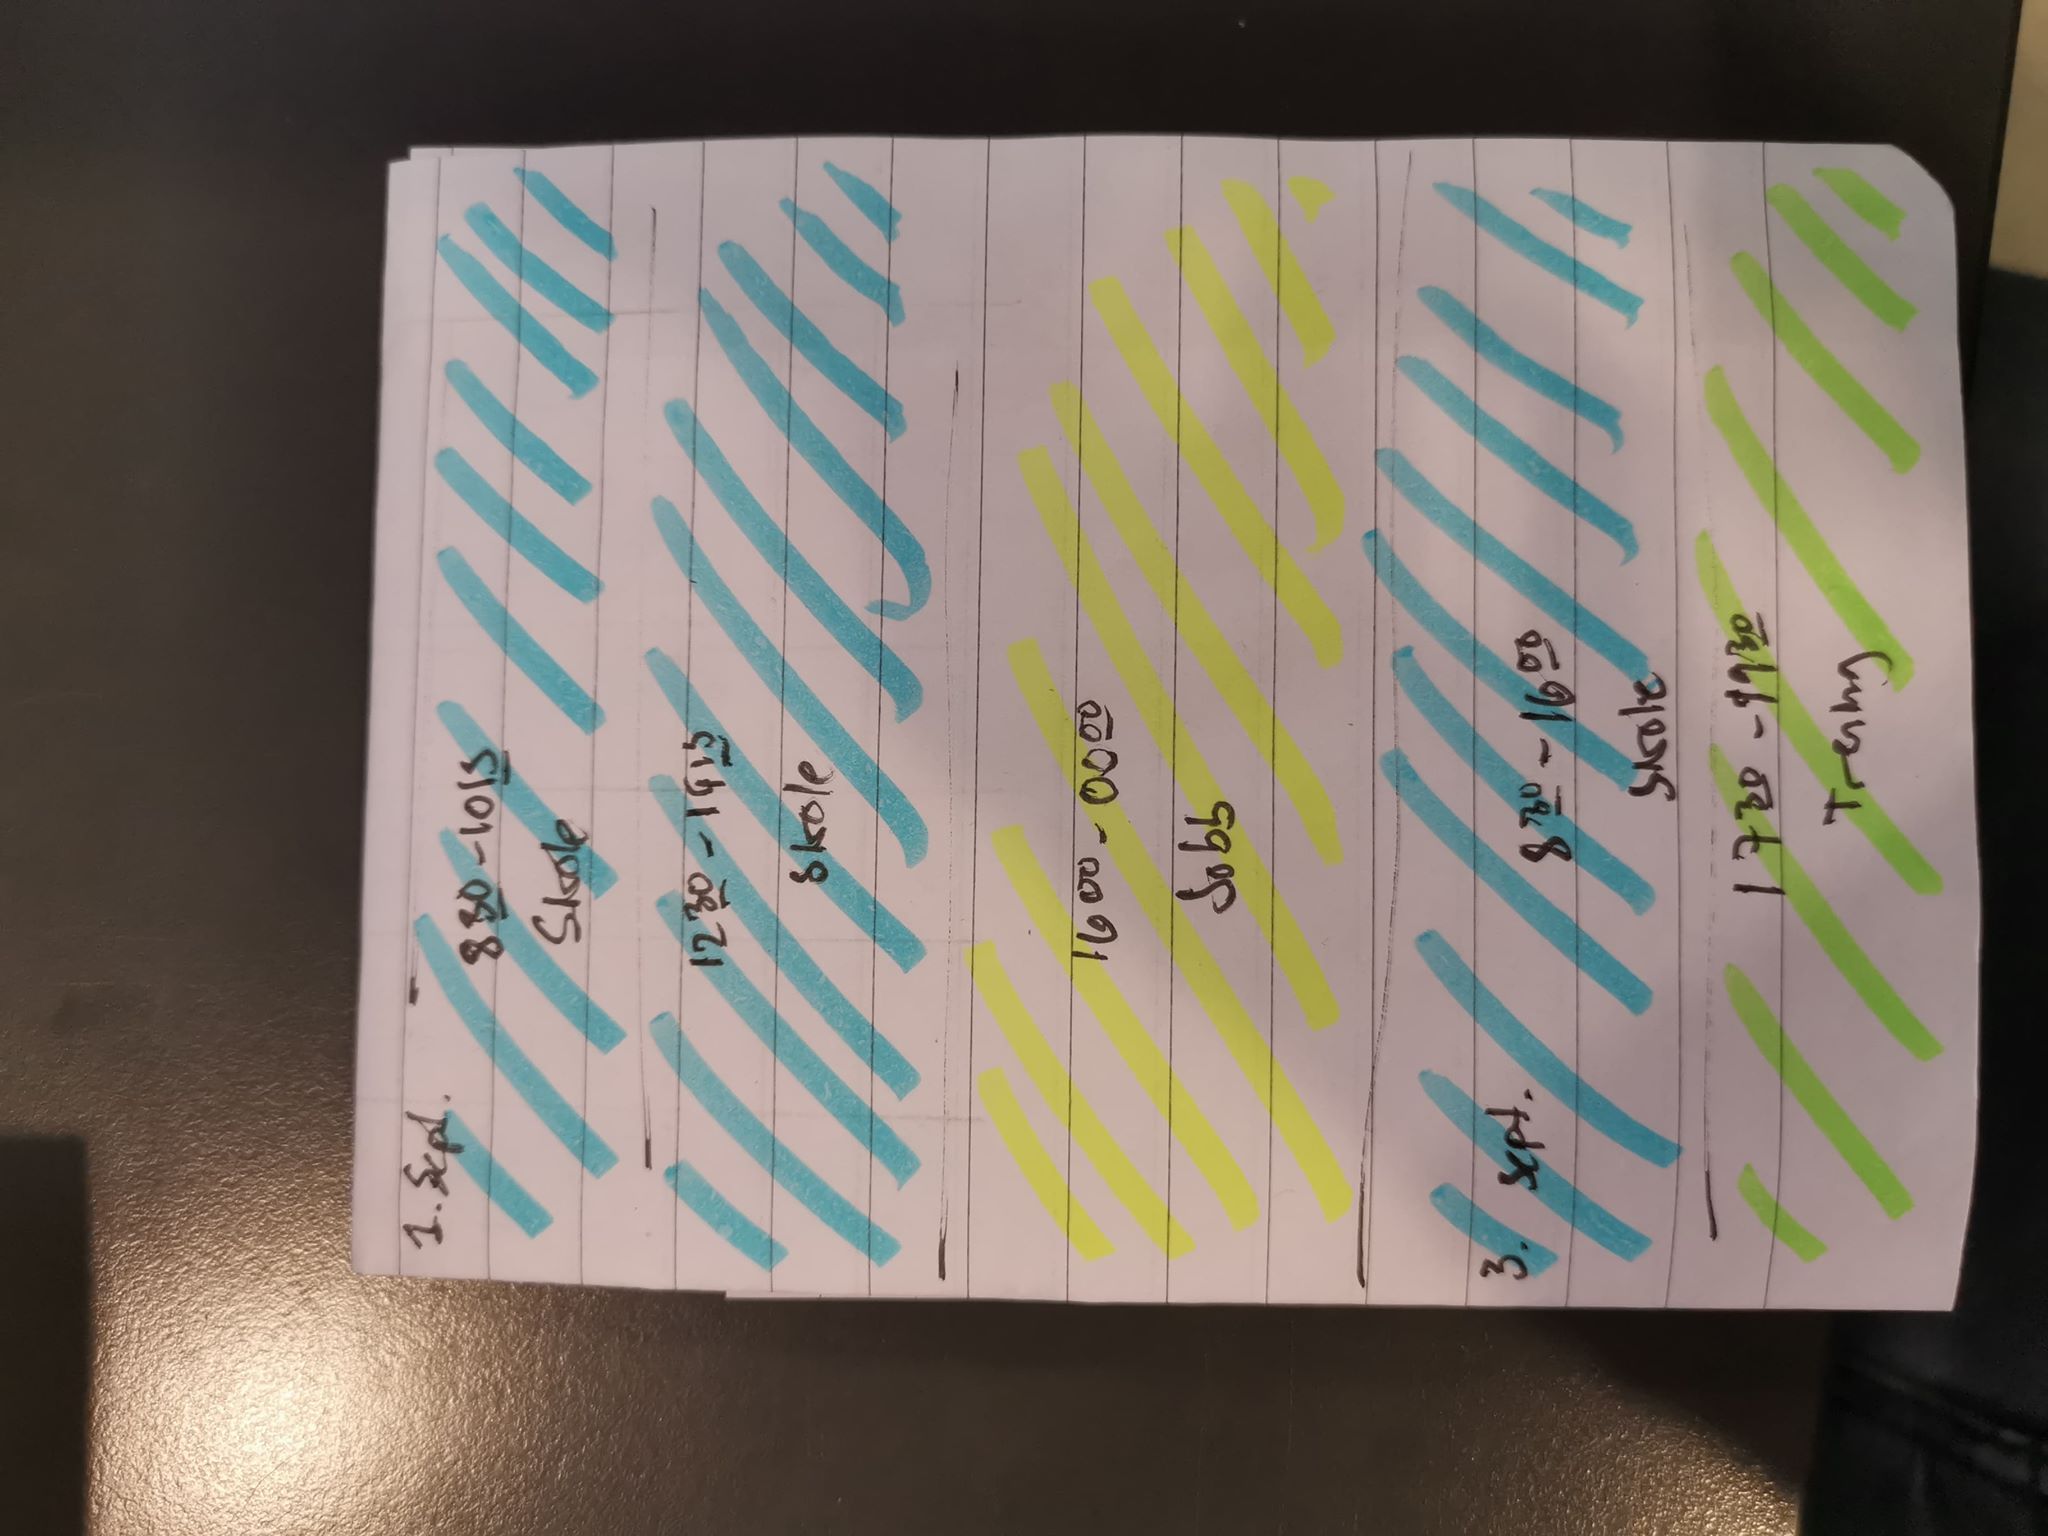 1. Sept.
8 30 - 10 15
Skole
12 30 - 14 15
Skole
16 00 - 00 00
Jobb
3. sept.
8 30 - 16 00
Skole
17 30 - 19 30
Trening